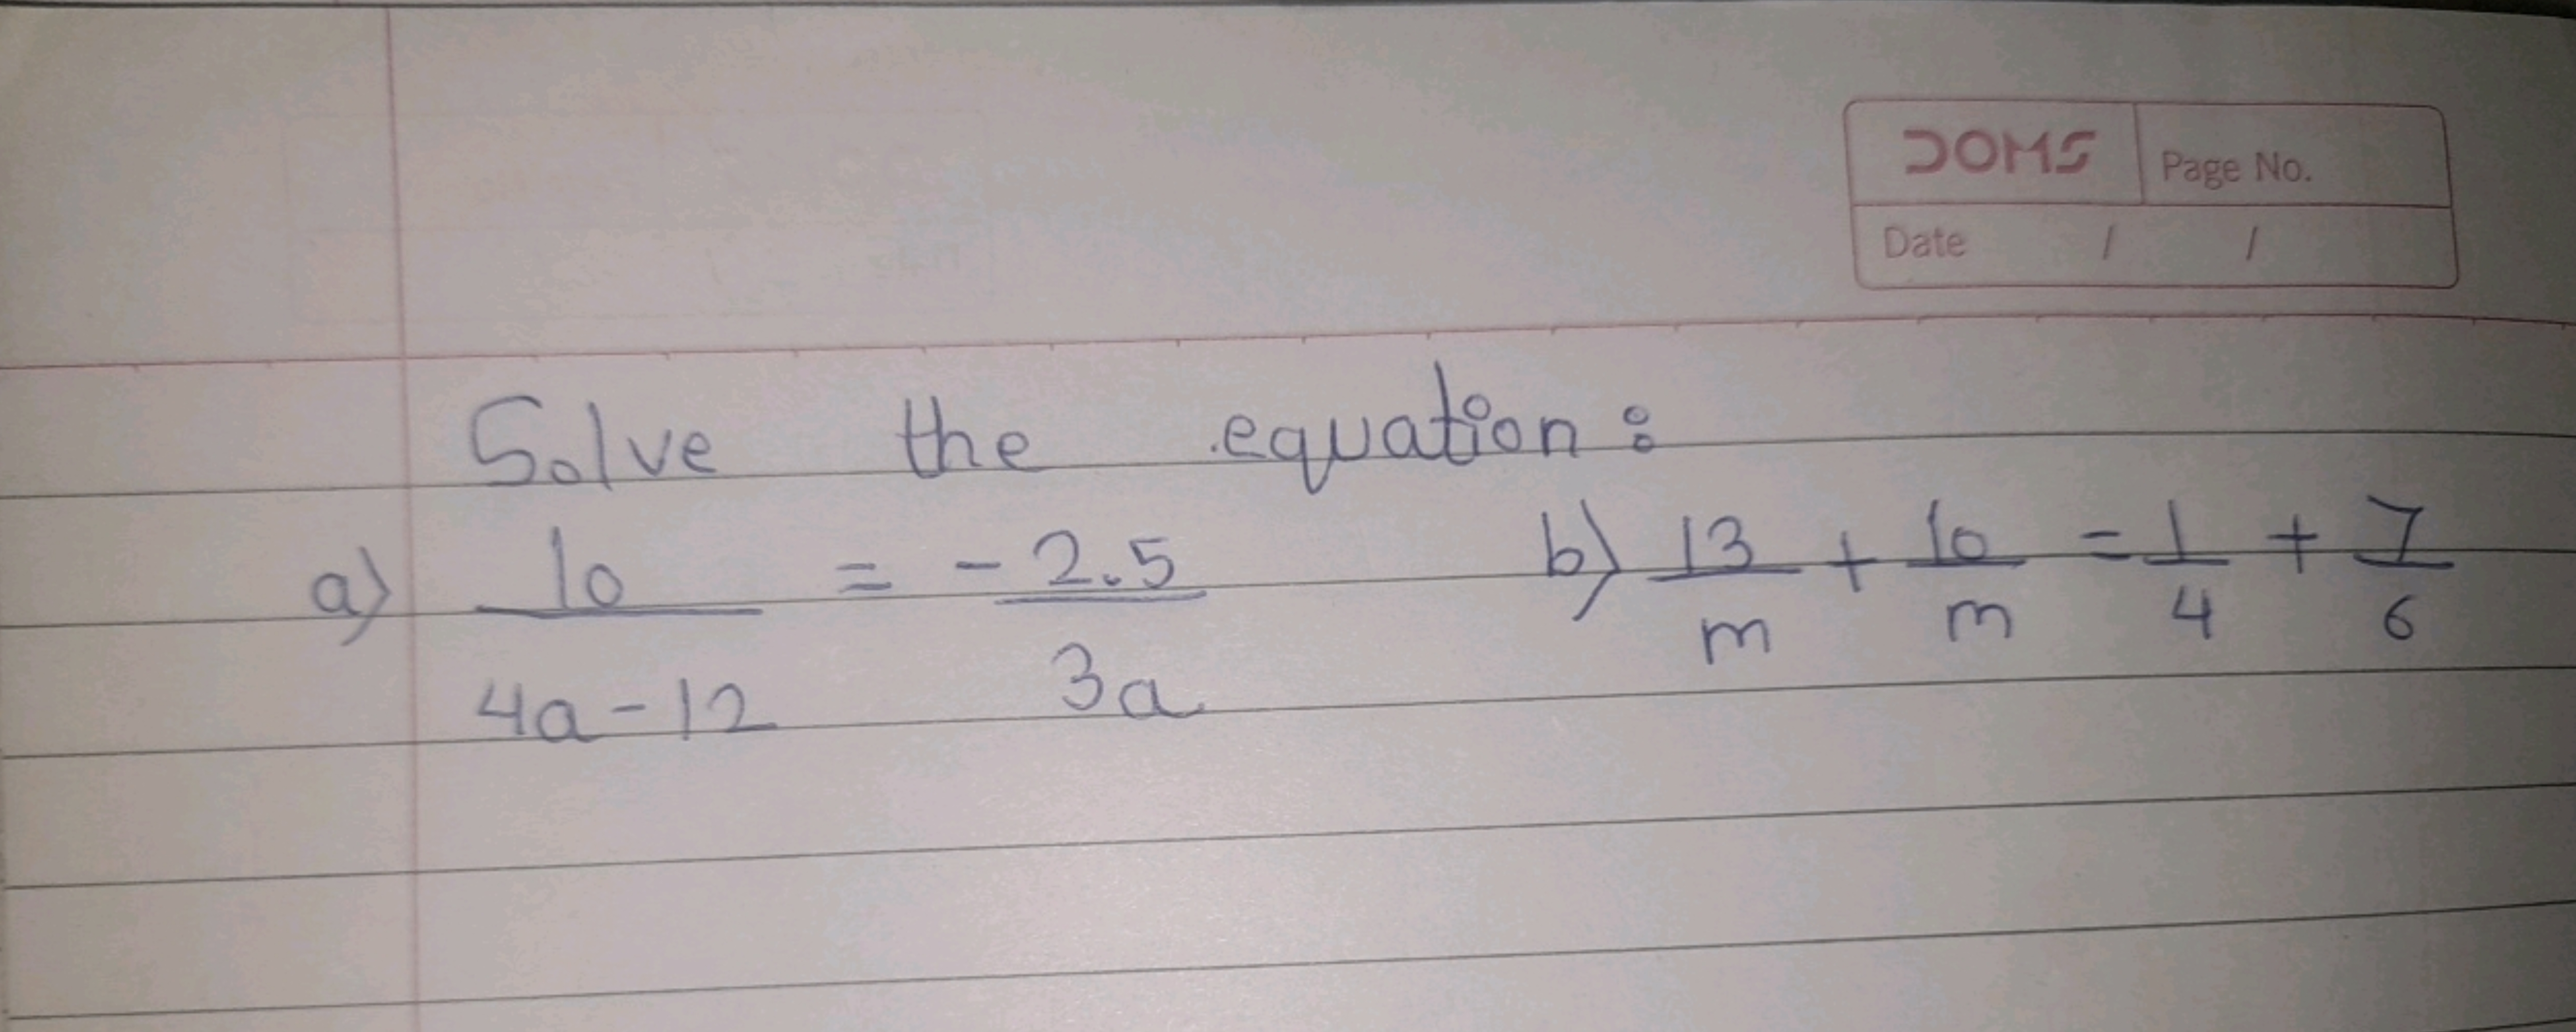 DOMS Page No.
Date / /
Solve the equation:
a) 10/(4a-12) = -2.5/3a b) 13/m + 10/m = 1/4 + 7/6